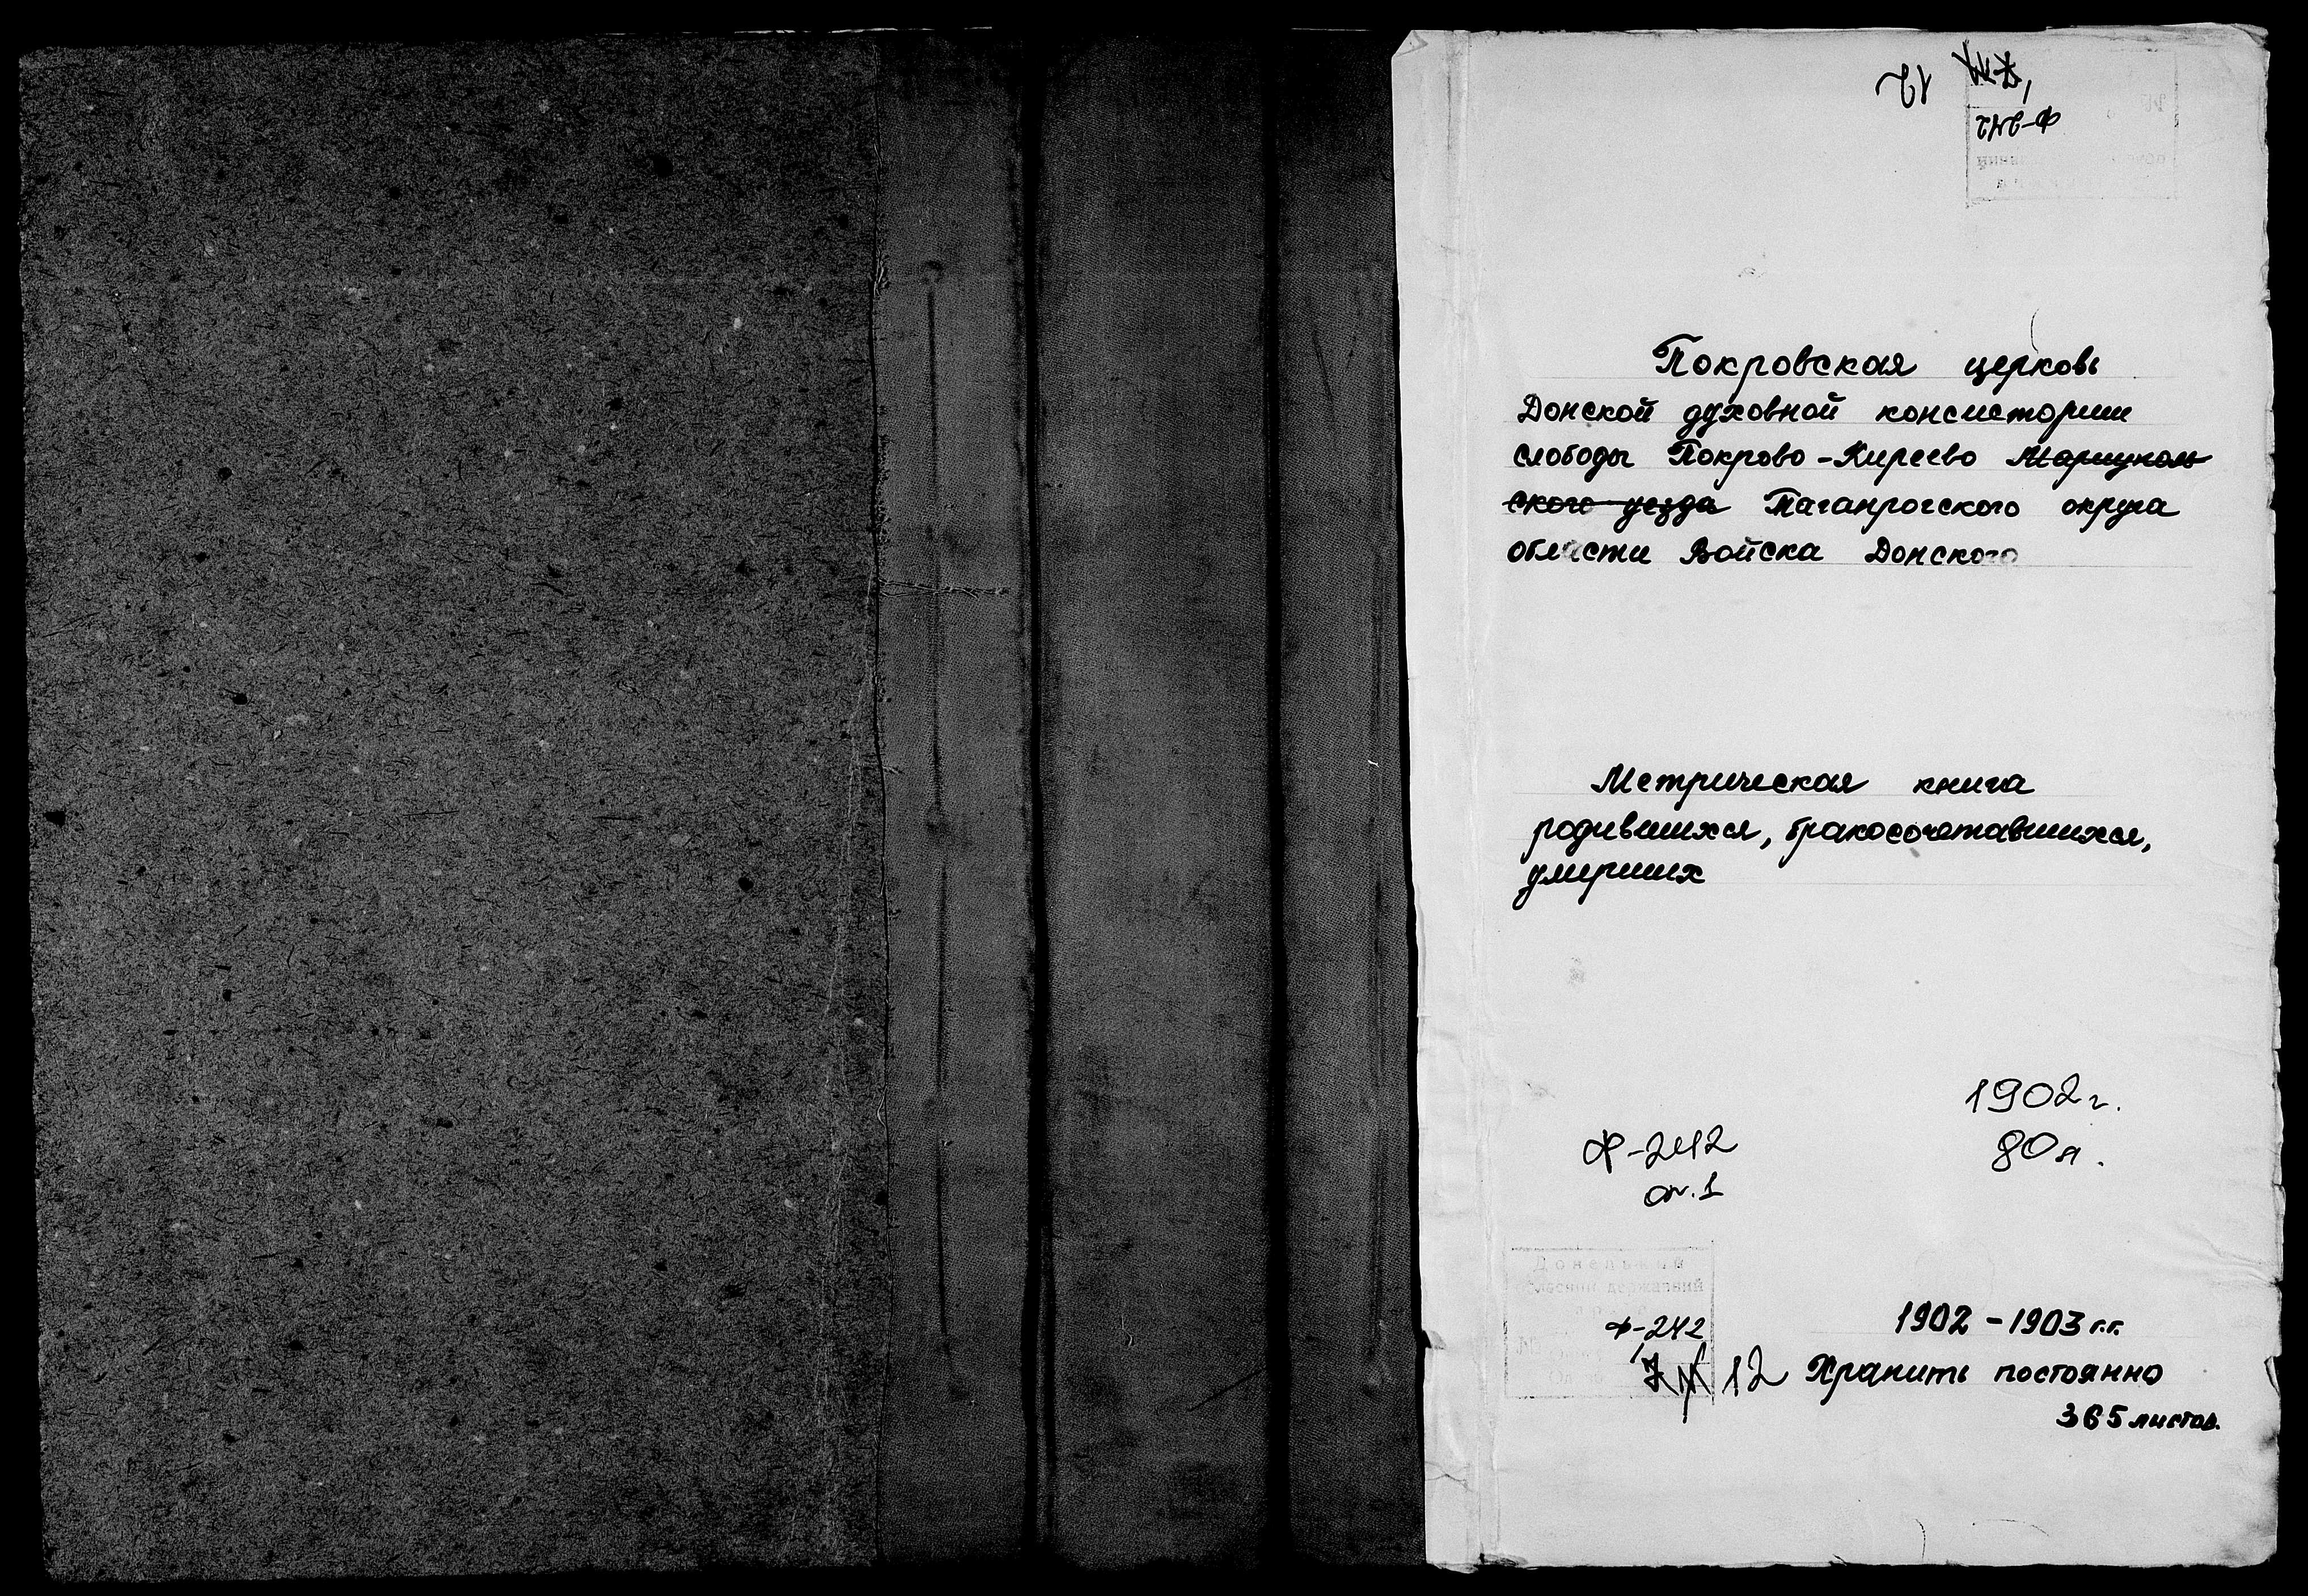 12
Ф-242
Покровская церковь
Донской духовной консистории
слободы Покрово-Киреево Мариуполь
ского уезда Таганрогского округа
области Войска Донского
Метрическая книга
родившихся, бракосочетавшихся,
умерших
1902 г.
80 л.
Ф-242
оп. 1
Донецький
обласний державний
1902 - 1903 г.г.
Ф-242
12 Хранить постоянно
365 листов.